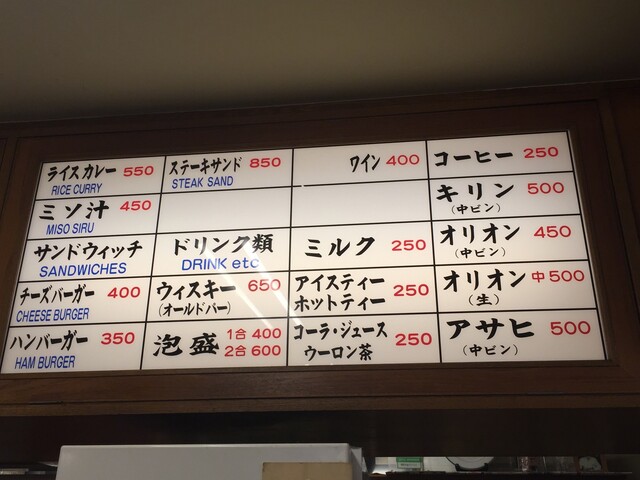 ライスカレー 550
RICE CURRY
ミソ汁 450
MISO SIRU
サンドウィッチ
SANDWICHES
チーズバーガー 400
CHEESE BURGER
ハンバーガー 350
HAM BURGER
ステーキサンド 850
STEAK SAND
ドリンク類
DRINK etc
ウィスキー 650
(オールドバー)
泡盛 1合 400
2合 600
ワイン 400
ミルク 250
アイスティー
ホットティー 250
コーラ・ジュース
ウーロン茶 250
コーヒー 250
キリン 500
(中ビン)
オリオン 450
(中ビン)
オリオン 中500
(生)
アサヒ 500
(中ビン)